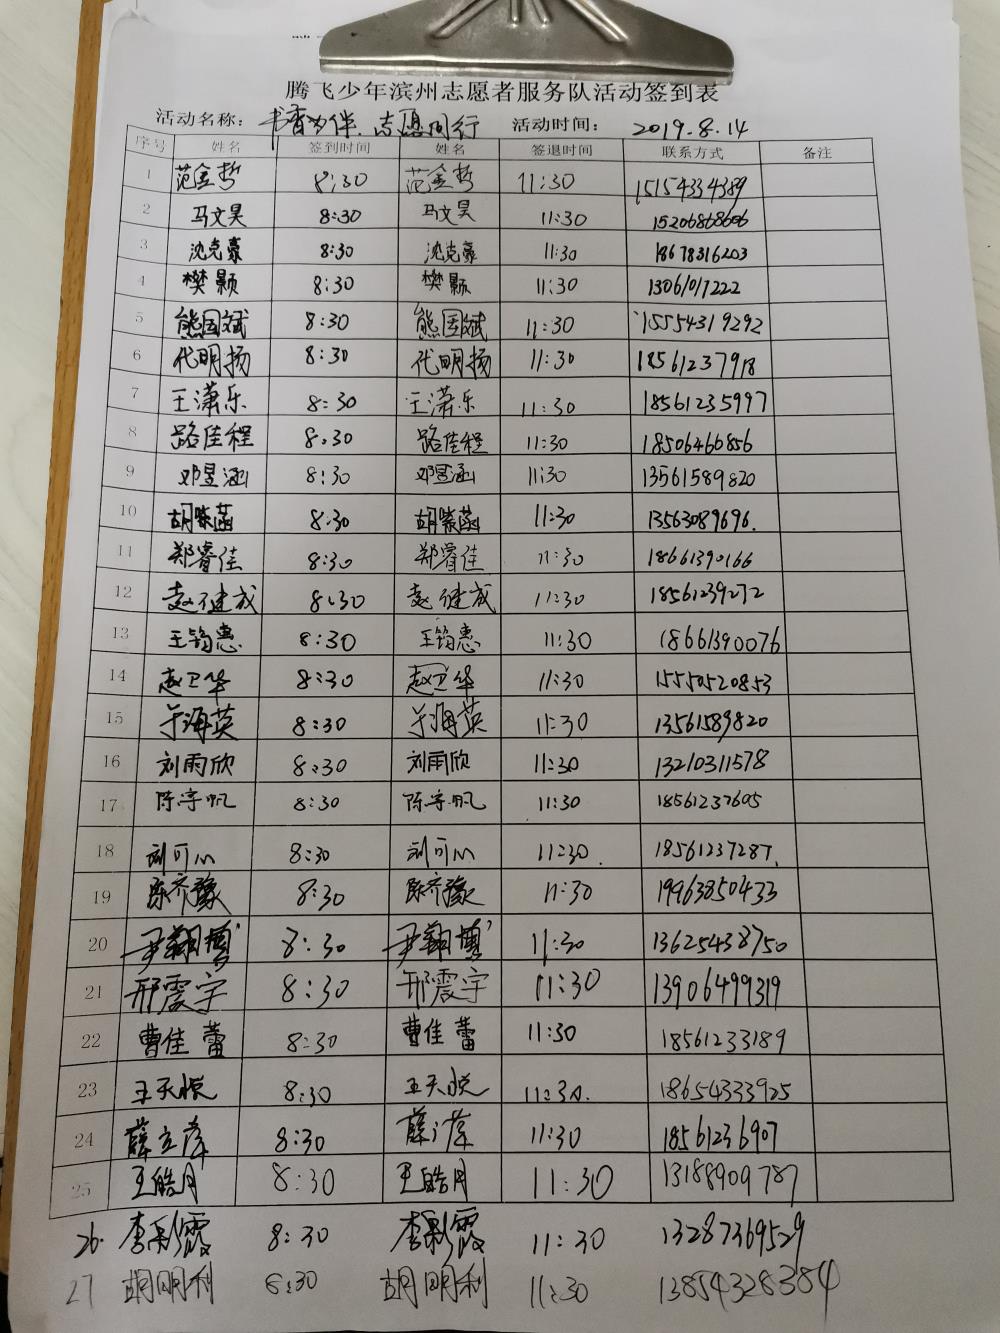 腾飞少年滨州志愿者服务队活动签到表
活动名称: 书香为伴.志愿同行 活动时间: 2019.8.14
序号 姓名 签到时间 姓名 签退时间 联系方式 备注
1 范金哲 8:30 范金哲 11:30 15154334389
2 马文昊 8:30 马文昊 11:30 15206868606
3 沈克豪 8:30 沈克豪 11:30 18678316203
4 樊颢 8:30 樊颢 11:30 13061017222
5 熊国斌 8:30 熊国斌 11:30 15554319292
6 代明扬 8:30 代明扬 11:30 18561237918
7 王潇乐 8:30 王潇乐 11:30 18561235997
8 路佳程 8.30 路佳程 11:30 18506460856
9 邓昱涵 8:30 邓昱涵 11:30 13561589820
10 胡紫菡 8.30 胡紫菡 11:30 13563089696.
11 郑睿佳 8:30 郑睿佳 11:30 18661390166
12 赵健成 8:30 赵健成 11:30 18561239272
13 王筠惠 8:30 王筠惠 11:30 18661390076
14 赵卫华 8:30 赵卫华 11:30 15550520853
15 于海英 8:30 于海英 11:30 13561589820
16 刘雨欣 8:30 刘雨欣 11:30 13210311578
17 陈宇帆 8:30 陈宇帆 11:30 18561237605
18 刘可心 8:30 刘可心 11:30. 18561237287.
19 陈齐豫 8:30 陈齐豫 11:30 19963850433
20 尹翔博 8:30 尹翔博 11:30 13625438750
21 邢震宇 8:30 邢震宇 11:30 13906499319
22 曹佳蕾 8:30 曹佳蕾 11:30 18561233189
23 王天悦 8:30 王天悦 11:30. 18654333925
24 薛立萍 8:30 薛立萍 11:30 18561236907
25 王皓月 8:30 王皓月 11:30 13188909787
26. 李彩霞 8:30 李彩霞 11:30 13287369529
27 胡明利 8:30 胡明利 11:30 13854328384